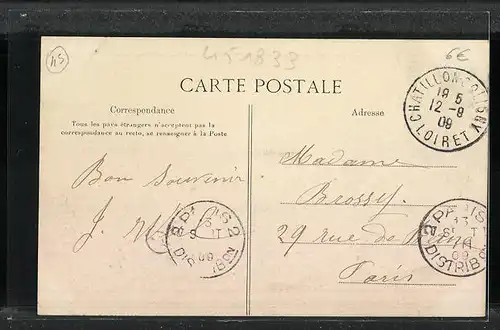 45
451833
6€
CARTE POSTALE
Correspondance
Tous les pays étrangers n'acceptent pas la
correspondance au recto, se renseigner à la Poste
Adresse
CHATILLON-COLIGNY
19 5
12 -8
09
LOIRET
Bon Souvenir
J.
Madame
Brossy
29 rue de
Paris
2 PARIS 2
09
DISTRIBON
2 PARIS
09
DISTRIB